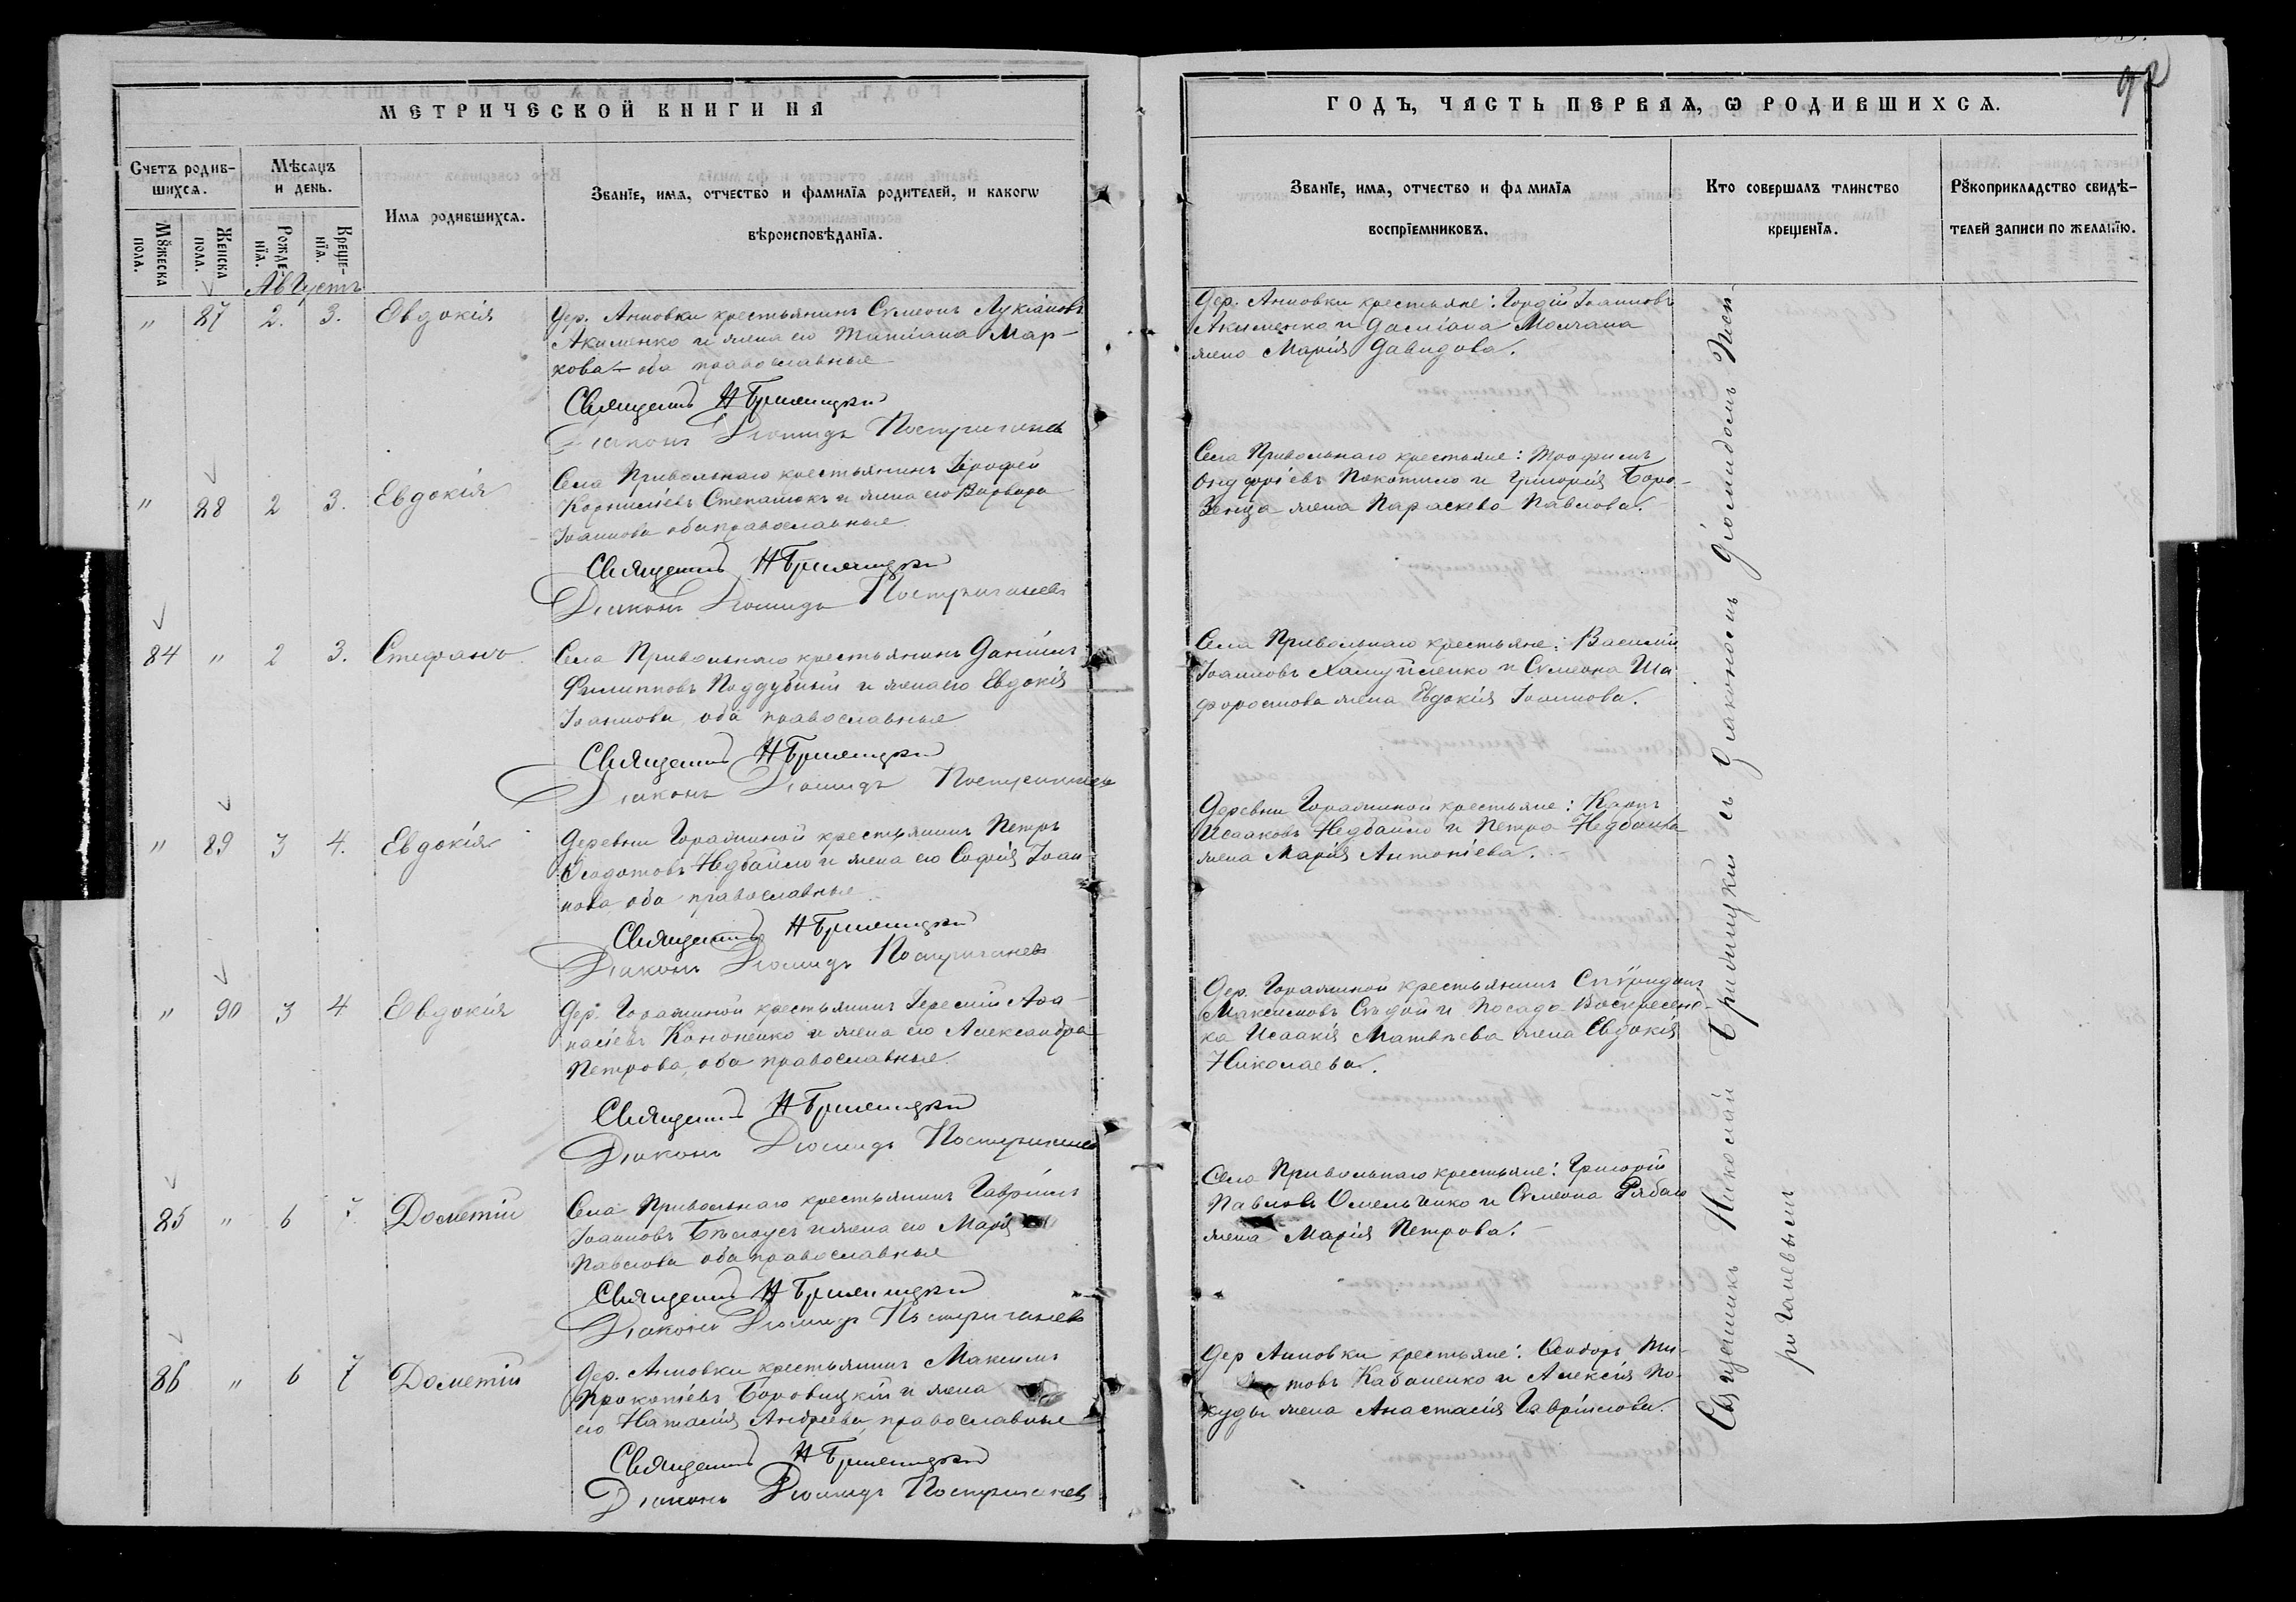 МЕТРИЧЕСКОЙ КНИГИ НА
Счетъ родив-
шихся.
Мѣсяцъ
и день.
Имя родившихся.
Званіе, имя, отчество и фамилія родителей, и какогѡ
вѣроисповѣданія.
Мꙋжеска
пола.
Женска
пола.
Рожде-
нія.
Креще-
нія.
Августъ
" 87 2. 3. Евдокія
Дер. Анновки крестьянинъ Симеонъ Лукіановъ
Акименко и жена его Татіана Мар-
кова оба православные
Священникъ Н Брилицкій
Діаконъ Діомидъ Постригачевъ
" 88 2 3. Евдокія
Села Привольнаго крестьянинъ Іерофей
Корниліевъ Степанюкъ и жена его Варвара
Іоаннова оба православные
Священникъ Н Брилицкій
Діаконъ Діомидъ Постригачевъ
84 " 2 3. Стефанъ
Села Привольнаго крестьянинъ Даніилъ
Филипповъ Поддубный и жена его Евдокія
Іоаннова, оба православные
Священникъ Н Брилицкій
Діаконъ Діомидъ Постригачевъ
" 89 3 4. Евдокія
Деревни Горажиной крестьянинъ Петръ
Ѳеодотовъ Недбайло и жена его Софія Іоан
нова оба православные
Священникъ Н Брилицкій
Діаконъ Діомидъ Постригачевъ
" 90 3 4 Евдокія
Дер. Горажиной крестьянинъ Іеремій Аѳа-
насіевъ Кононенко и жена его Александра
Петрова, оба православные
Священникъ Н Брилицкій
Діаконъ Діомидъ Постригачевъ
85 " 6 7. Дометій
Села Привольнаго крестьянинъ Гавріилъ
Іоанновъ Бѣлоусъ и жена его Марія
Павлова оба православные
Священникъ Н Брилицкій
Діаконъ Діомидъ Постригачевъ
86 " 6 7 Дометій
Дер. Анновки крестьянинъ Максимъ
Прокопіевъ Боровицкій и жена
его Наталія Андреева, православные
Священникъ Н Брилицкій
Діаконъ Діомидъ Постригачевъ
92
ГОДЪ, ЧАСТЬ ПЕРВАЯ, Ѡ РОДИВШИХСЯ.
Званіе, имя, отчество и фамилія
воспріемниковъ.
Кто совершалъ таинство
крещенія.
Рꙋкоприкладство свидѣ-
телей записи по желанію.
Дер. Анновки крестьяне: Гордій Іоанновъ
Акименко и Даміана Молчана
жена Марія Давидова.
Села Привольнаго крестьяне: Трофимъ
Онуфріевъ Покотило и Григорія Боро-
жена Параскева Павлова.
Села Привольнаго крестьяне: Василій
Іоанновъ и Симеона Ша
форостова жена Евдокія Іоаннова.
Деревни Горажиной крестьяне: Карпъ
Исааковъ Недбайло и Петра Недбайла
жена Марія Антоніева.
Дер. Горажиной крестьянинъ Спѵридонъ
Максимовъ Сѣдой и Посада Воскресенс-
ка Исаакія Матвѣева жена Евдокія
Николаева.
Села Привольнаго крестьяне: Григорій
Павловъ Омельченко и Симеона Рябаго
жена Марія Петрова.
Дер Анновки крестьяне: Ѳеодоръ Ти-
товъ Кабаненко и Алексія По-
куды жена Анастасія Гавріилова.
Священникъ Николай Брилицкій съ Діакономъ Діомидомъ Пост-
ригачевымъ